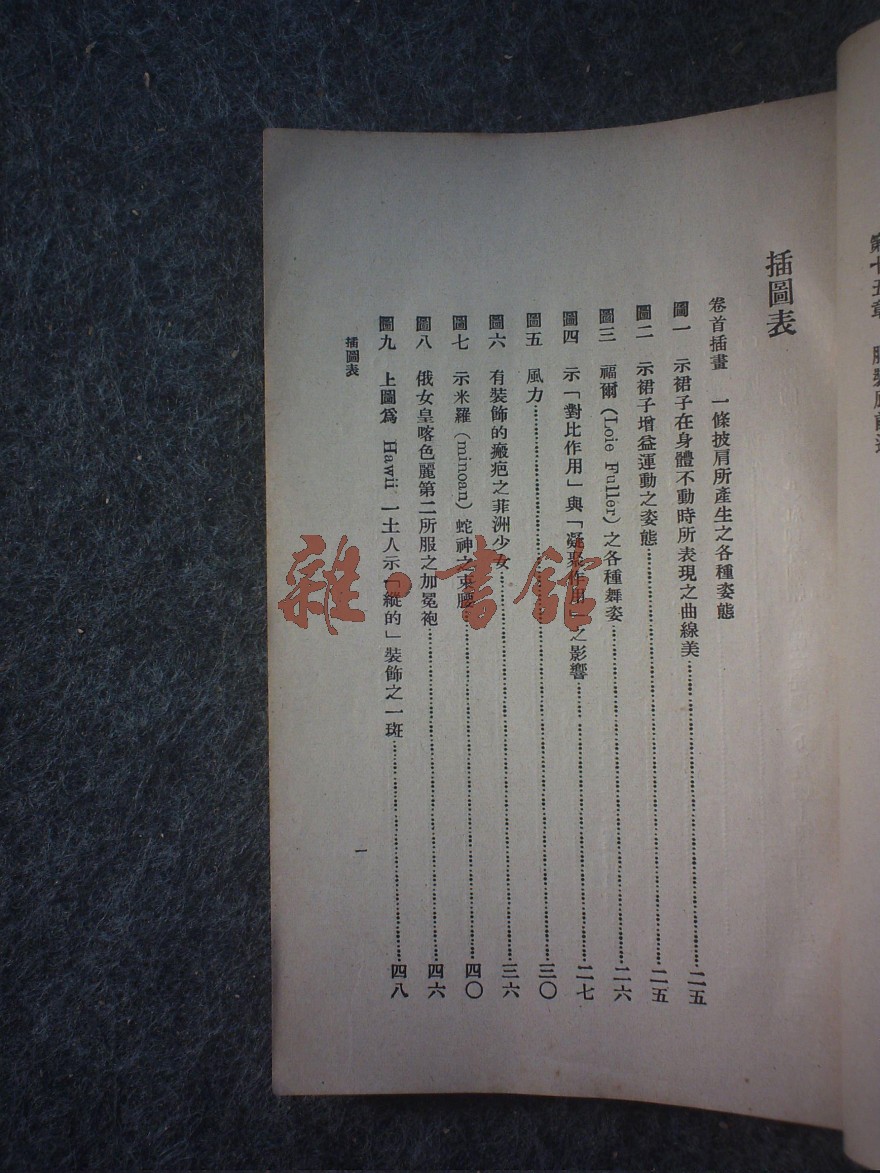 第十五章
插圖表
卷首插畫 一條披肩所產生之各種姿態
圖一 示裙子在身體不動時所表現之曲線美……二五
圖二 示裙子增益運動之姿態……二五
圖三 福爾(Loie Fuller)之各種舞姿……二六
圖四 示「對比作用」與「凝聚作用」之影響……二七
圖五 風力……三〇
圖六 有裝飾的瘢疤之菲洲少女……三六
圖七 示米羅(minoan)蛇神之束腰……四〇
圖八 俄女皇喀色麗第二所服之加冕袍……四六
圖九 上圖爲 Hawii 一土人示「縱的」裝飾之一斑……四八
插圖表
一
雜·書館